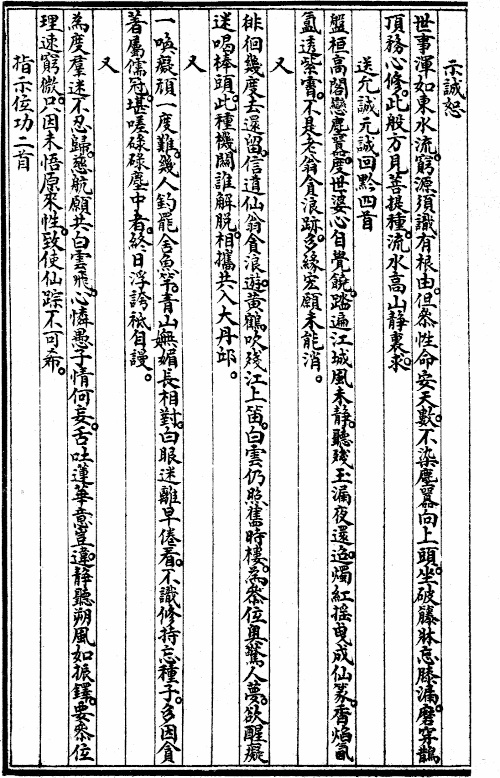 示誠恕
世事渾如東水流。窮源須識有根由。但叅性命安天數。不染塵囂向上頭。坐破籐牀忘膝漏。磨穿鵲
頂務心修。此般方見菩提種。流水高山靜裏求。
送允誠元誠回黔四首
盤桓高閣戀塵寰。度世婆心自覺饒。踏遍江城風未靜。聽殘玉漏夜還迢。燭紅搖曳成仙篆。香焰氤
氳透紫霄。不是老翁貪浪跡。多緣宏願未能消。
又
徘徊幾度去還留。信道仙翁貪浪遊。黃鶴吹殘江上笛。白雲仍照舊時樓。為叅位奧驚人夢。欲醒癡
迷喝棒頭。此種機關誰解脱。相攜共入大丹邱。
又
一喚癡頑一度難。幾人釣罷舍魚竿。青山嫵媚長相對。白眼迷離早倦看。不識修持忘種子。多因貪
著屬儒冠。堪嗟碌碌塵中者。終日浮誇祗自謾。
又
為度羣迷不忍歸。慈航願共白雲飛。心憐愚子情何妄。舌吐蓮華意豈違。靜聽朔風如振鐸。要叅位
理速窮微。只因未悟原來性。致使仙踪不可希。
指示位功二首